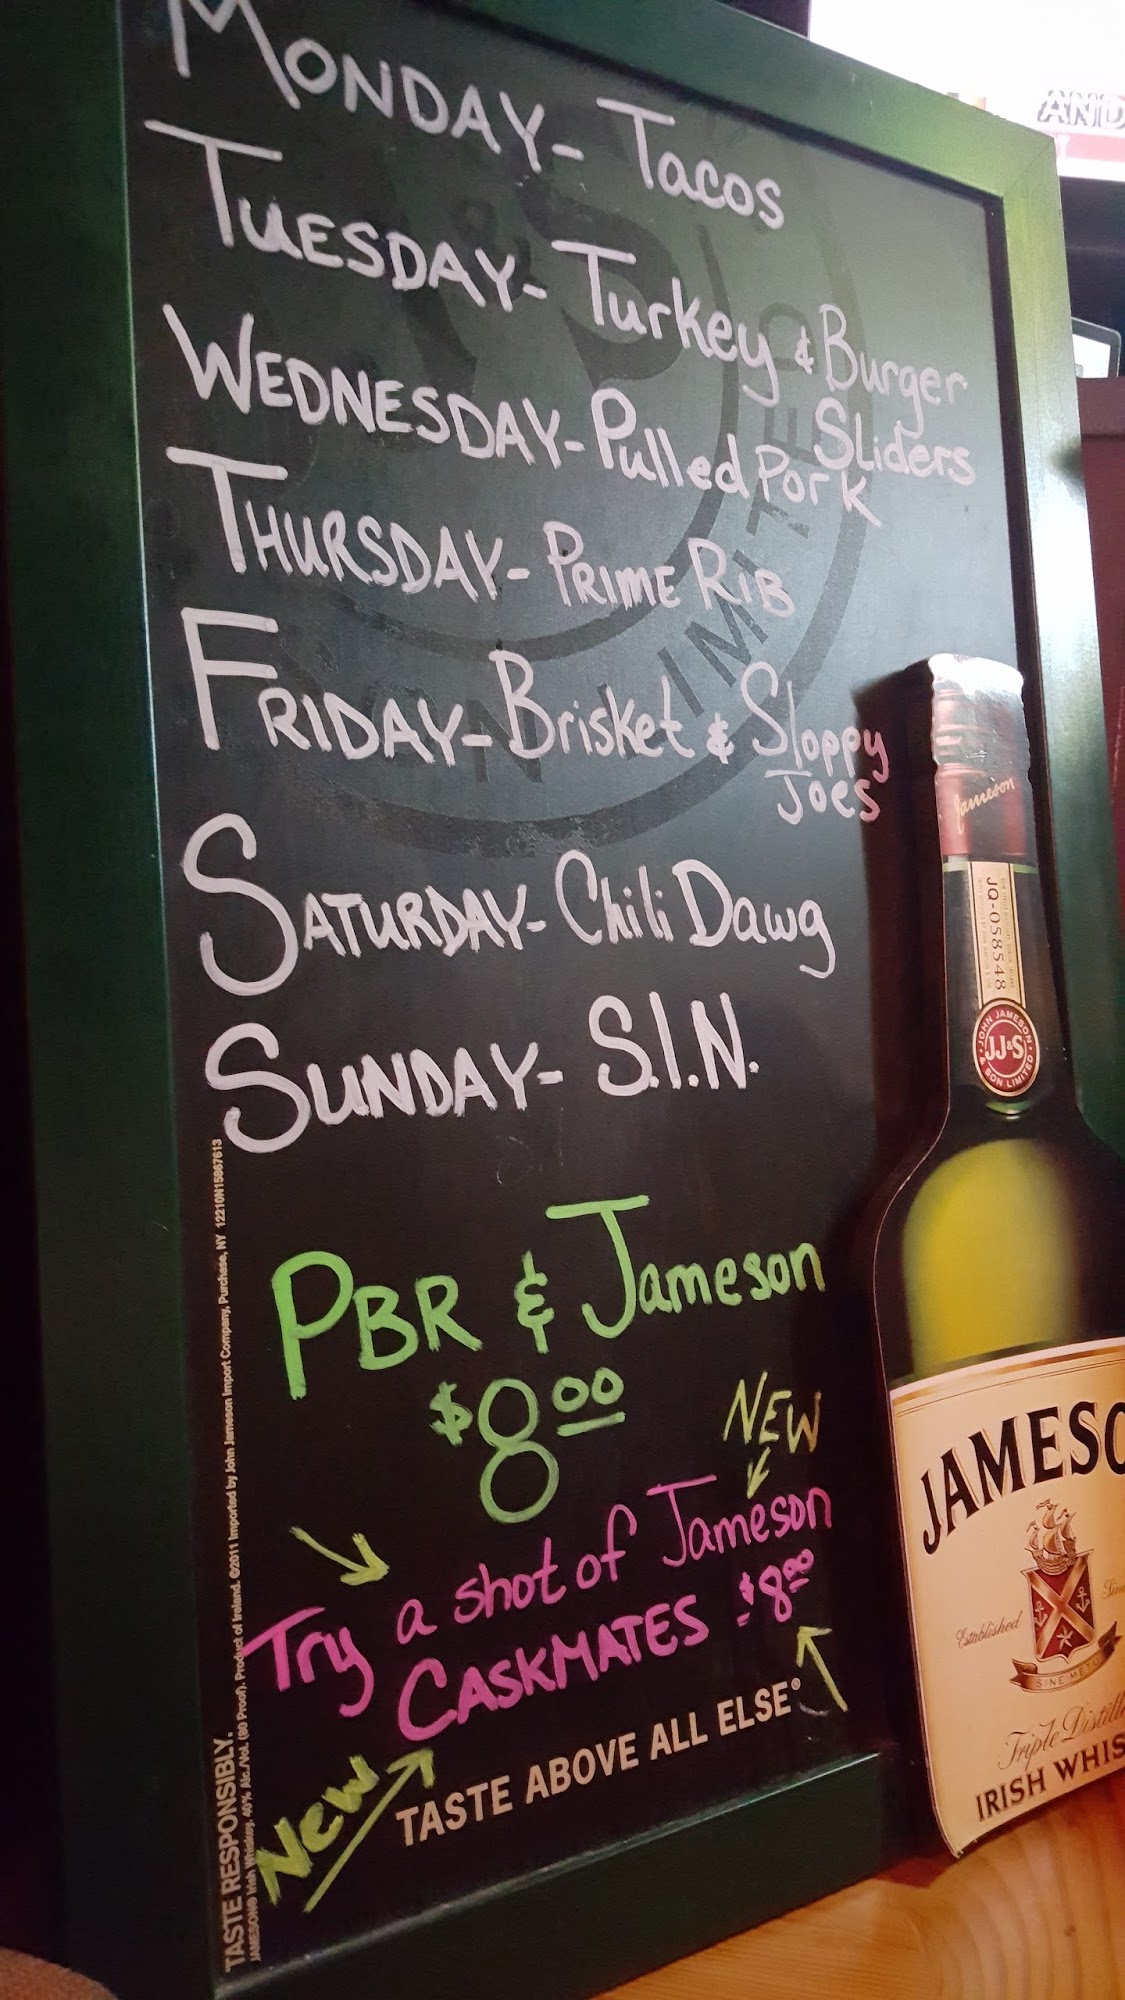 MONDAY - Tacos
TUESDAY - Turkey & Burger
Sliders
WEDNESDAY - Pulled Pork
THURSDAY - PRIME RIB
FRIDAY - Brisket & Sloppy
Joes
SATURDAY - Chili Dawg
SUNDAY - S.I.N.
PBR & Jameson
$8.00
NEW
Try a shot of Jameson
CASKMATES $8.00
New
TASTE ABOVE ALL ELSE®
TASTE RESPONSIBLY.
JAMESON® Irish Whiskey. 40% Alc./Vol. (80 Proof). Product of Ireland. ©2011 Imported by John Jameson Import Company, Purchase, NY 12210N15867613
&S
LIMITED
AND
Jameson
JQ-058548
JOHN JAMESON
JJ&S
& SON LIMITED
JAMESO
Established
SINE METU
Triple Distill
IRISH WHIS